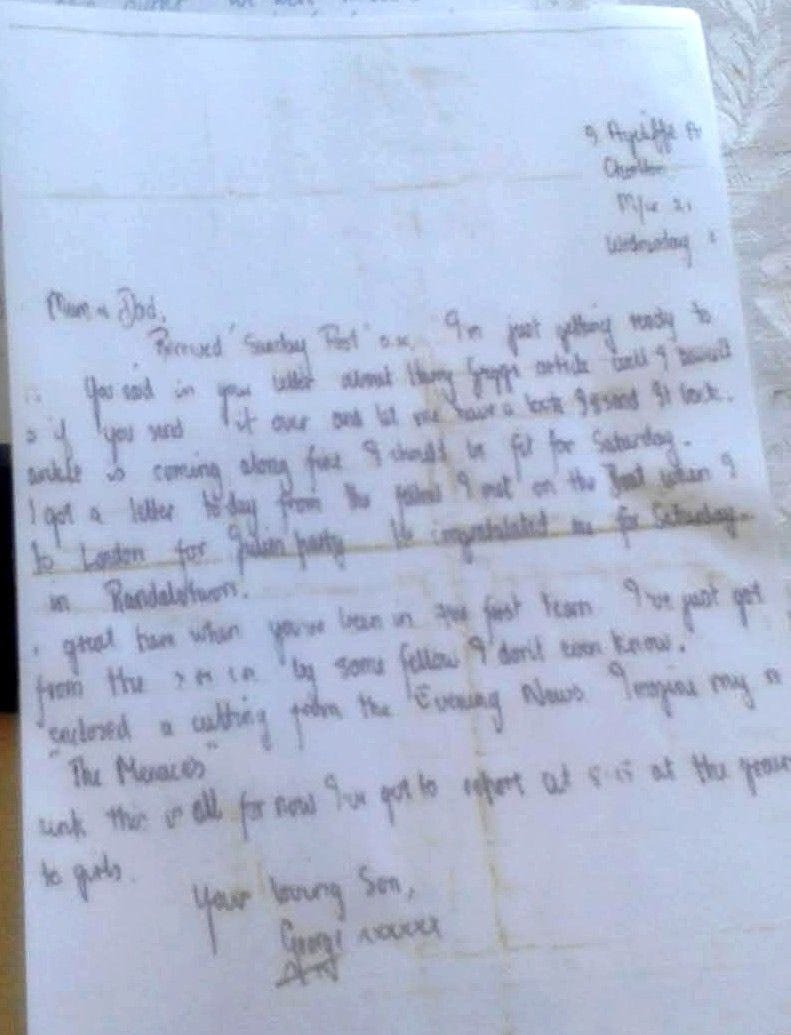 9 Aycliffe Av
Chorlton
M/cr 21
Wednesday
Mum & Dad,
Received "Sunday Post" o.k. I'm just getting ready to
You said in your letter about Harry Greggs article well I
if you send it over and let me have a look I'll send it back.
ankle is coming along fine I should be fit for Saturday.
I got a letter today from the I met on the Boat when I
to London for party He congratulated me for Saturday
in Randalstown.
great fun when you've been in the first team I've just got
from the by some fellow I don't even know.
enclosed a cutting from the Evening News. Imagine my n
"The Menaces"
this is all for now I've got to report at at the groun
to girls.
Your loving Son,
George xxxxx